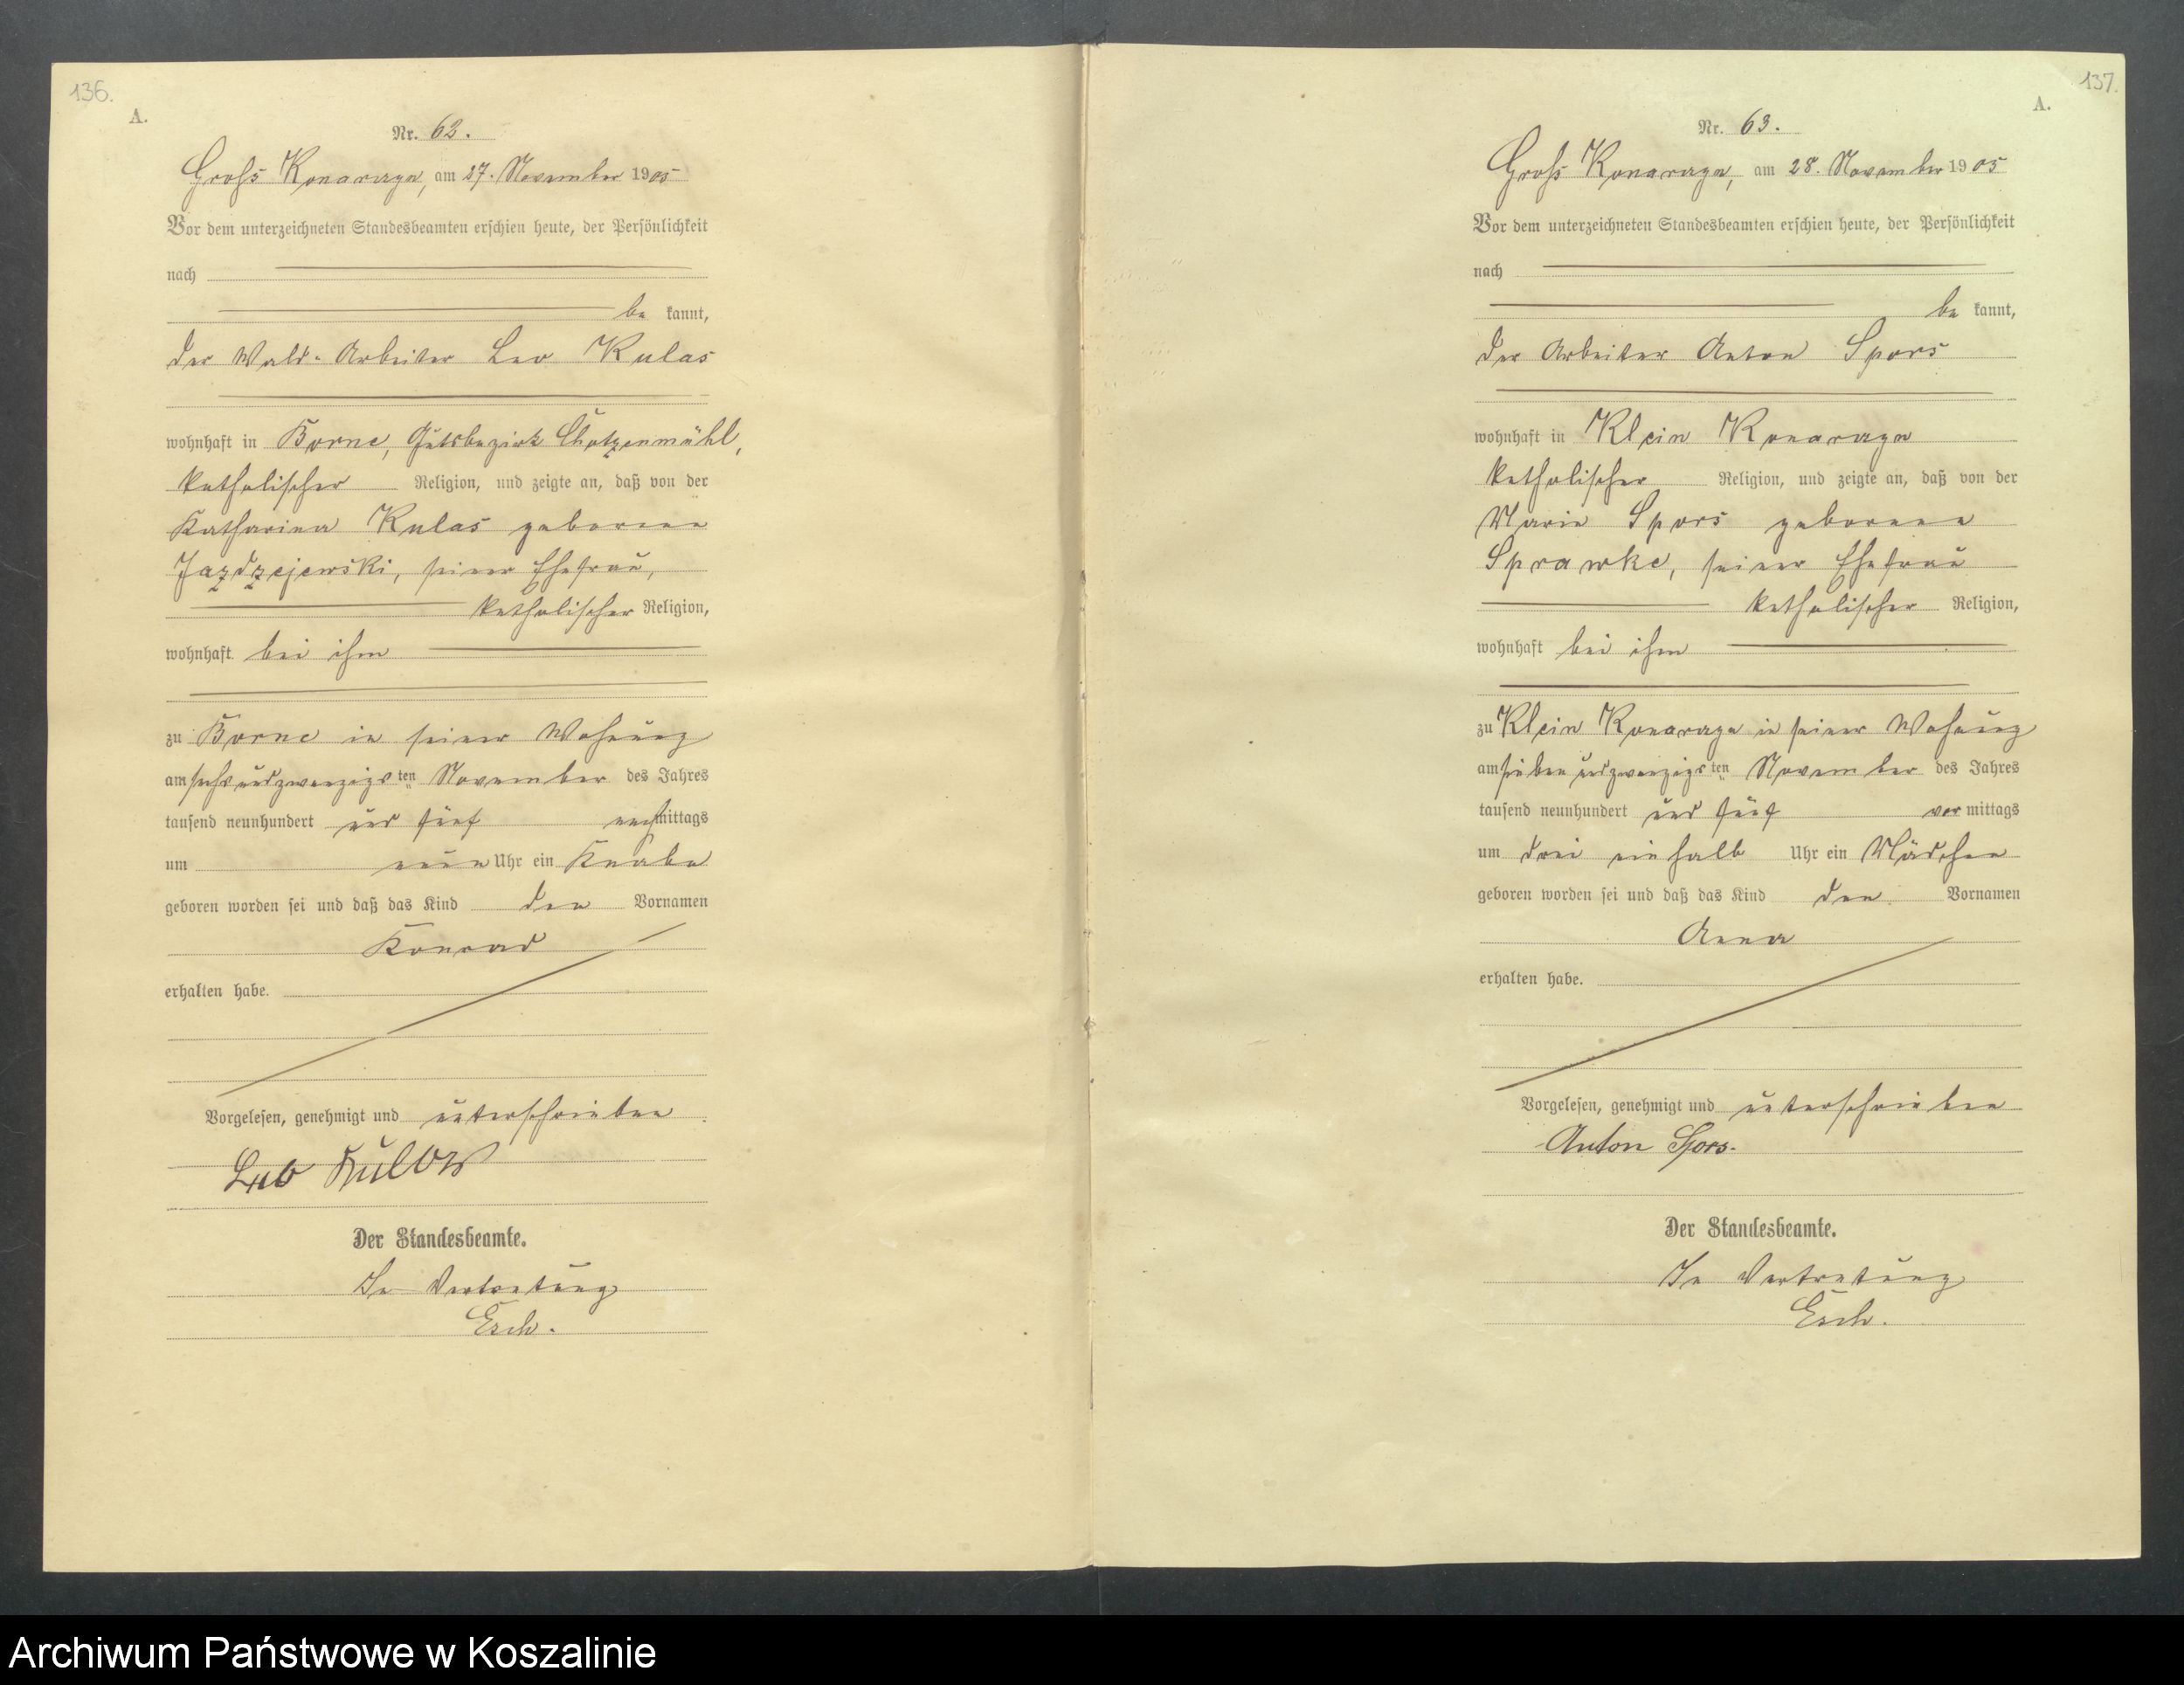 136.
A.
Nr. 62.
Groß Konarzyn, am 27. November 1905
Vor dem unterzeichneten Standesbeamten erschien heute, der Persönlichkeit
nach
be kannt,
der Wald-Arbeiter Leo Kulas
wohnhaft in Borne, Gutsbezirk Chotzenmühl,
katholischer Religion, und zeigte an, daß von der
Katharina Kulas geborene
Jazdzejewski, seiner Ehefrau,
katholischer Religion,
wohnhaft bei ihm
zu Borne in seiner Wohnung
am sechsundzwanzigsten November des Jahres
tausend neunhundert und fünf nachmittags
um neun Uhr ein Knabe
geboren worden sei und daß das Kind den Vornamen
Konrad
erhalten habe.
Vorgelesen, genehmigt und unterschrieben
Leo Kulas
Der Standesbeamte.
In Vertretung
Esch.
137.
A.
Nr. 63.
Groß Konarzyn, am 28. November 1905
Vor dem unterzeichneten Standesbeamten erschien heute, der Persönlichkeit
nach
be kannt,
der Arbeiter Anton Spors
wohnhaft in Klein Konarzyn
katholischer Religion, und zeigte an, daß von der
Marie Spors geborene
Sprawke, seiner Ehefrau
katholischer Religion,
wohnhaft bei ihm
zu Klein Konarzyn in seiner Wohnung
am siebenundzwanzigsten November des Jahres
tausend neunhundert und fünf vor mittags
um drei ein halb Uhr ein Mädchen
geboren worden sei und daß das Kind den Vornamen
Anna
erhalten habe.
Vorgelesen, genehmigt und unterschrieben
Anton Spors.
Der Standesbeamte.
In Vertretung
Esch.
Archiwum Państwowe w Koszalinie